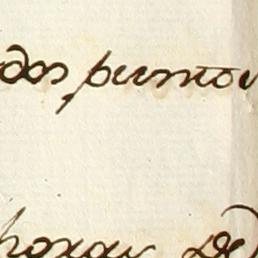 dos puntos
horas de